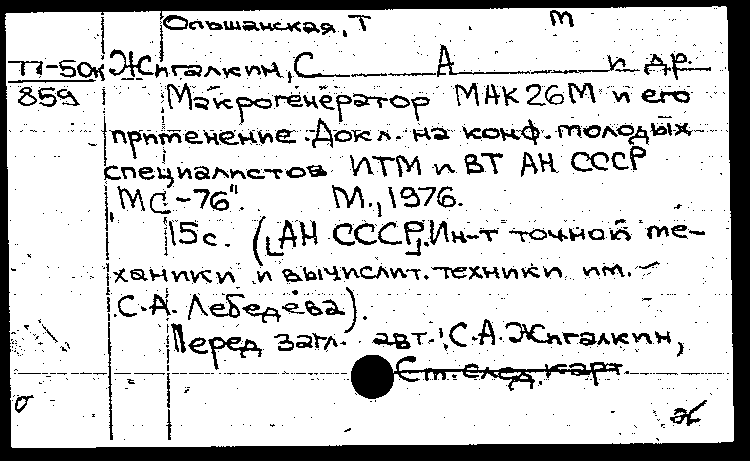 Ольшанская, Т М
П-50к Жигалкин, С А и др.
859 Макрогенератор МАК 26М и его
применение. Докл. на конф. молодых
специалистов ИТМ и ВТ АН СССР
"МС-76". М., 1976.
15с. ([АН СССР]. Ин-т точной ме-
ханики и вычислит. техники им.
С.А. Лебедева).
Перед загл. авт.: С.А. Жигалкин,
См. след. карт.